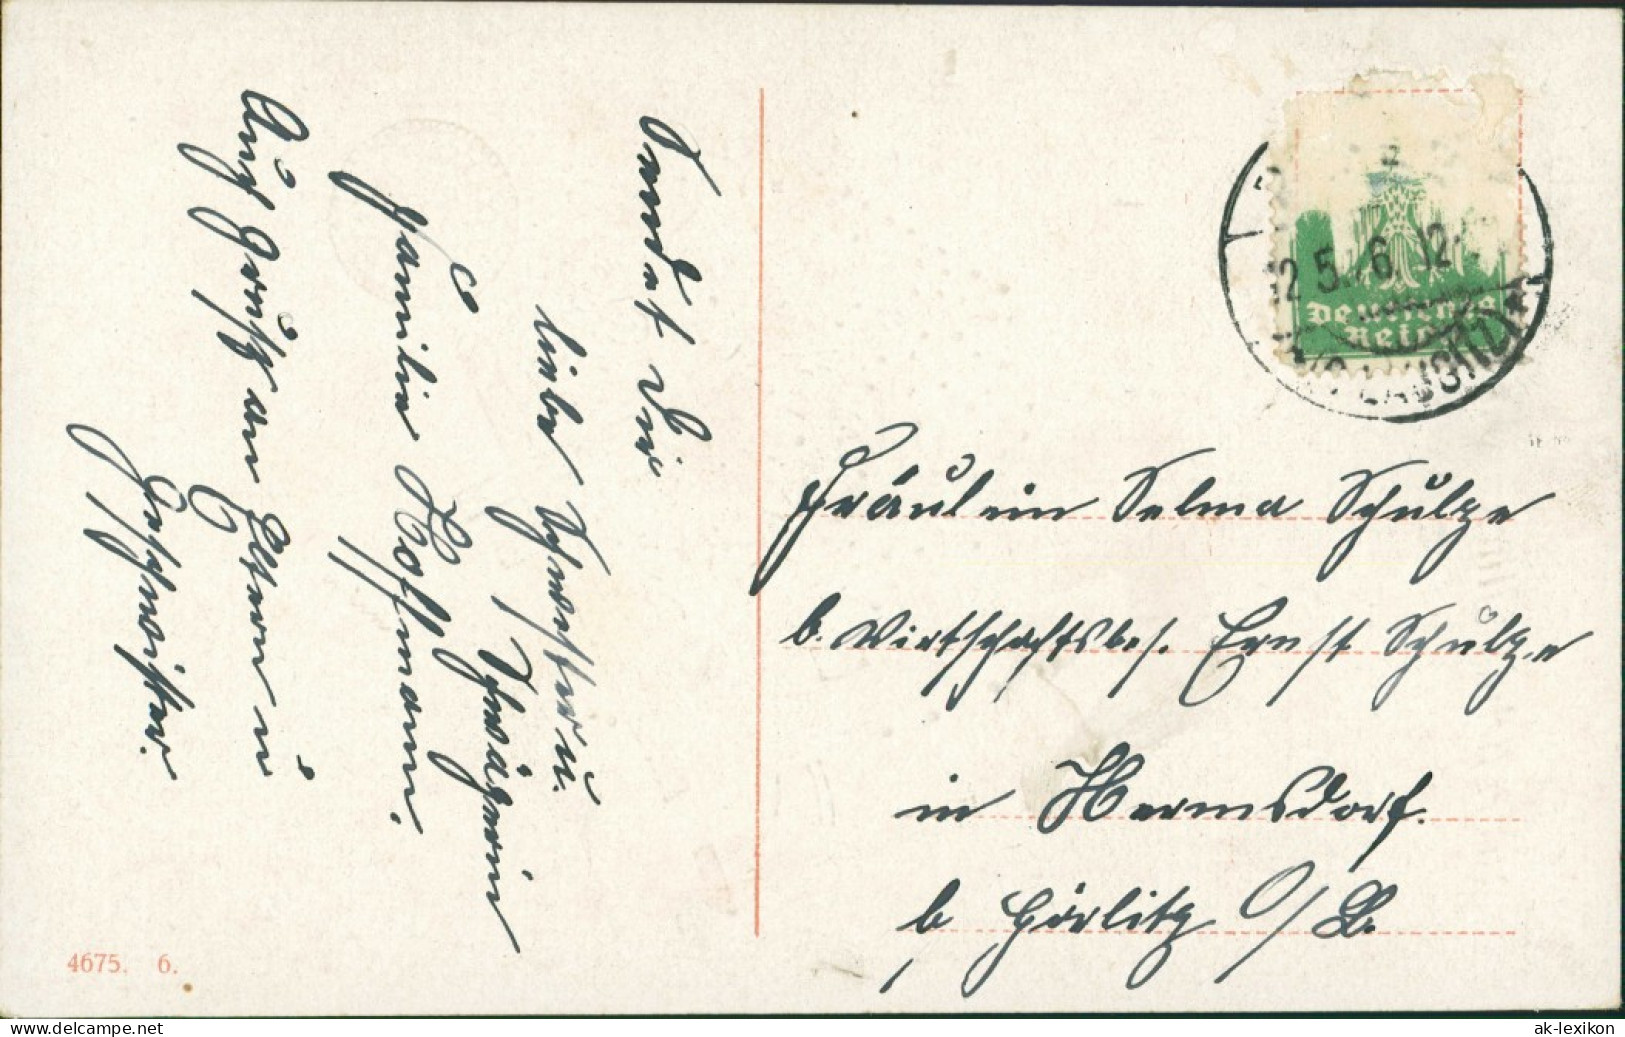 Sendet Dir
liebe Schwester u.
Schwägerin
Familie Hoffmann.
Auch Gruß an Eltern u
Geschwister.
Deutsches
Reich
25. 6. 12
LAUSITZ
Fräulein Selma Schulze
b. Wirtschaftsbes. Ernst Schulze
in Hermsdorf.
b Görlitz O/L.
4675. 6.
www.delcampe.net
ak-lexikon